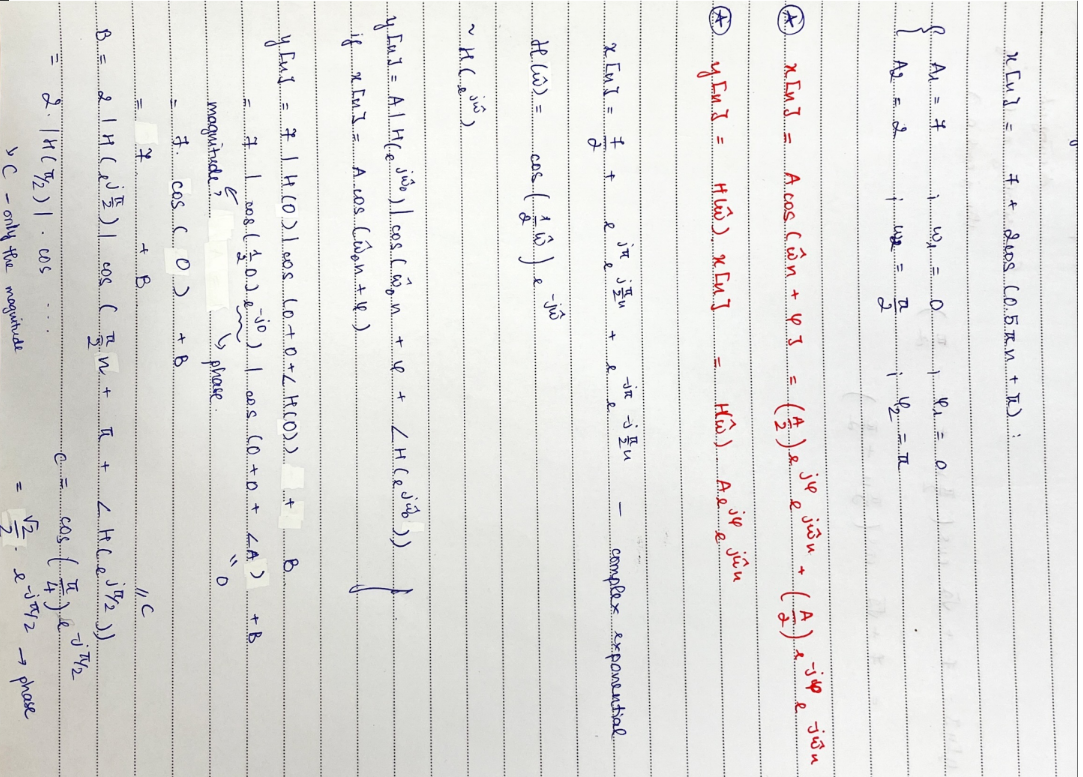 x[n] = 7 + 2cos(0.5πn + π) :
{ A₁ = 7 ; ω₁ = 0 ; φ₁ = 0
A₂ = 2 ; ω₂ = π/2 ; φ₂ = π
(*) x[n] = A cos(ω̂n + φ] = (A/2) e^{jφ} e^{jω̂n} + (A/2) e^{-jφ} e^{-jω̂n}
(*) y[n] = H(ω̂) x[n] = H(ω̂) A e^{jφ} e^{jω̂n}
x[n] = 7/2 + e^{jπ} e^{jπ/2 n} + e^{-jπ} e^{-jπ/2 n} – complex exponential
H(ω̂) = cos(1/2 ω̂) e^{-jω̂}
~ H(e^{jω̂})
y[n] = A |H(e^{jω̂₀})| cos(ω̂₀n + φ + ∠H(e^{jω̂₀}))
if x[n] = A cos(ω̂₀n + φ)
y[n] = 7 |H(0)| cos(0 + 0 + ∠H(0)) + B
= 7 | cos(1/2 0) e^{-j0}) | cos(0 + 0 + ∠A) + B
magnitude? ↳ phase. " 0
= 7. cos(0) + B
= 7 + B
B = 2 |H(e^{jπ/2})| cos(π/2 n + π + ∠H(e^{jπ/2})) // C
= 2. |H(π/2)| . cos ... C = cos(π/4) e^{-jπ/2}
↘ C – only the magnitude = √2/2 . e^{-jπ/2} → phase